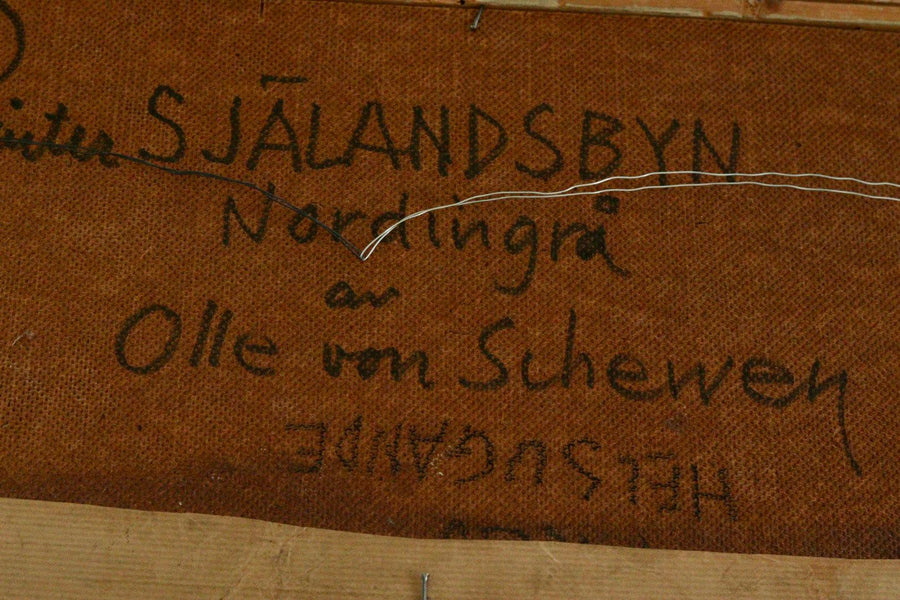 SJÄLANDSBYN
Nordingrå
av
Olle von Schewen
HELSUGANDE